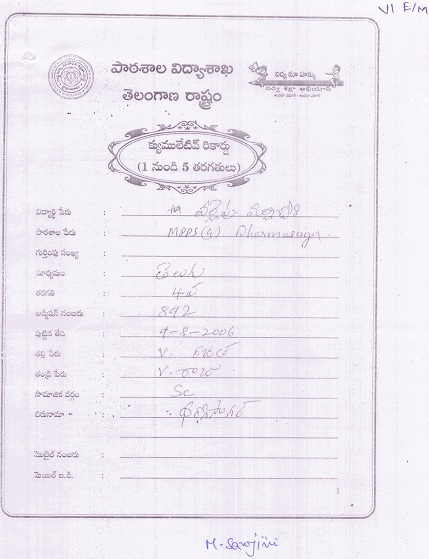 VI E/M
పాఠశాల విద్యాశాఖ
తెలంగాణ రాష్ట్రం
విద్య మా హక్కు
సర్వ శిక్షా అభియాన్
క్యుములేటివ్ రికార్డు
(1 నుండి 5 తరగతులు)
విద్యార్థి పేరు :
పాఠశాల పేరు : MPPS(G) Dharmasagar
గుర్తింపు సంఖ్య :
మాధ్యమం : తెలుగు
తరగతి : 4వ
అడ్మిషన్ నంబరు : 892
పుట్టిన తేది : 9-8-2006
తల్లి పేరు : V.
తండ్రి పేరు : V. రాజు
సామాజిక వర్గం : SC
చిరునామా : ధర్మసాగర్
మొబైల్ నంబరు :
మెయిల్ ఐ.డి. :
M. Sarojini